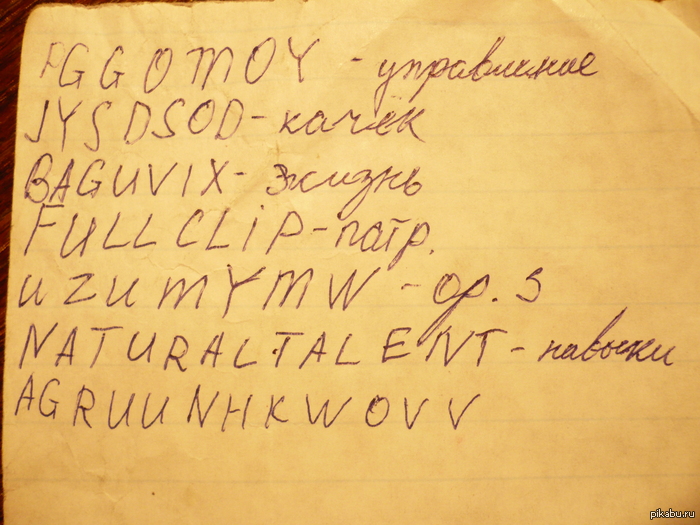 PGGOMOY - управление
JYSDSOD - качек
BAGUVIX - жизнь
FULLCLiP - патр.
UZUMYMW - ор. 3
NATURALTALENT - навыки
AGRUUNHKWOVV
pikabu.ru